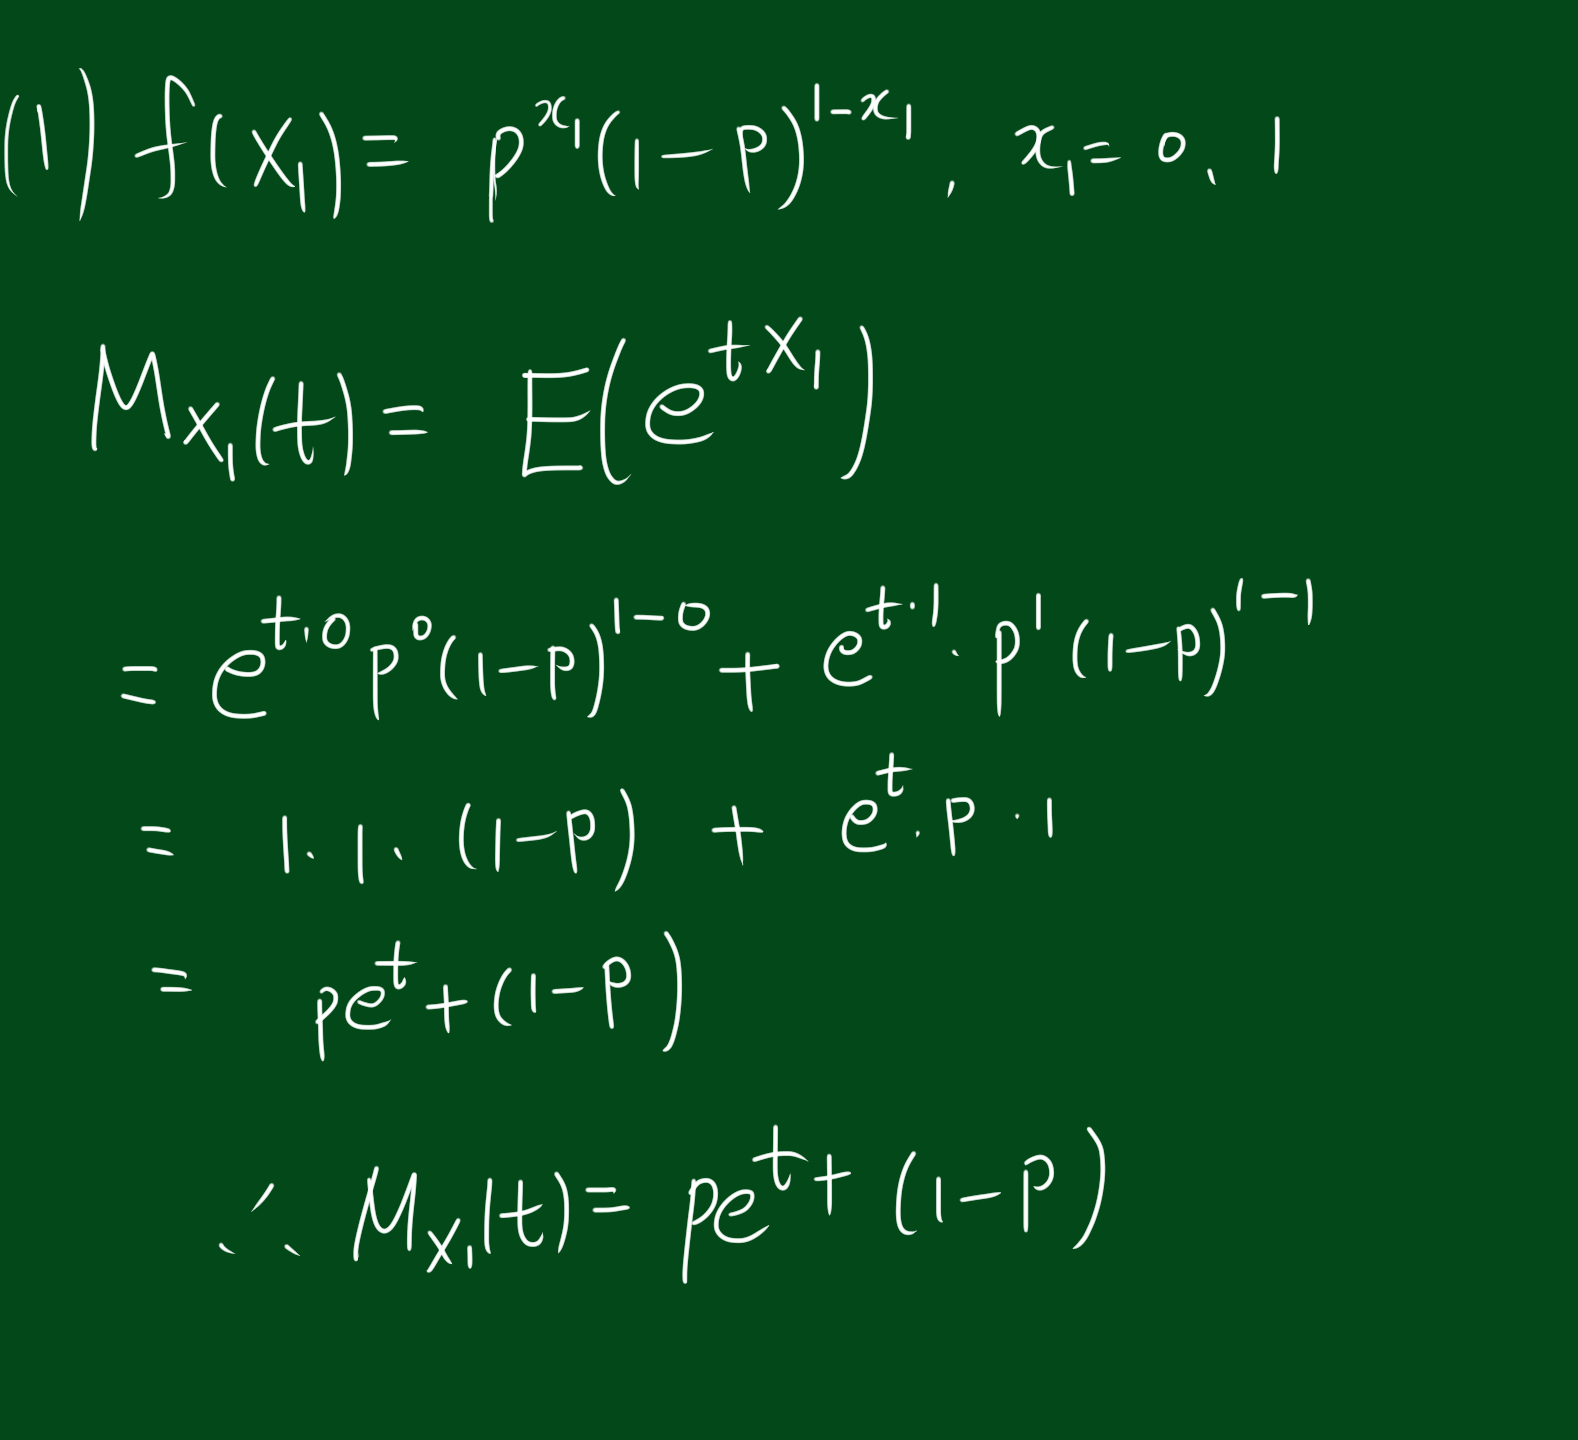 (1) f(x₁) = p^{x₁}(1-p)^{1-x₁}, x₁ = 0, 1
M_{X₁}(t) = E(e^{tX₁})
= e^{t·0} p⁰(1-p)^{1-0} + e^{t·1} · p¹(1-p)^{1-1}
= 1 · 1 · (1-p) + e^t · p · 1
= pe^t + (1-p)
∴ M_{X₁}(t) = pe^t + (1-p)